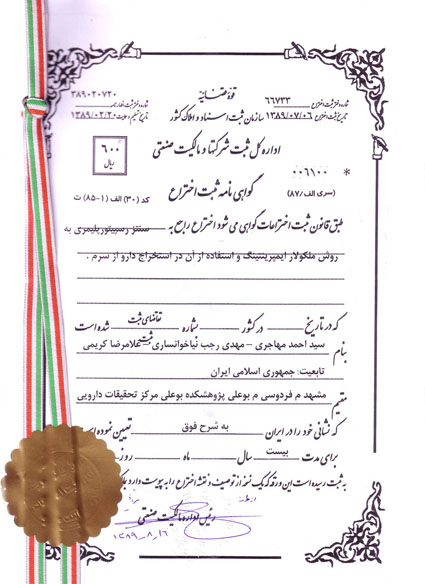 قوه قضائیه
سازمان ثبت اسناد و املاک کشور
شماره ثبت اختراع ۶۶۷۳۳
تاریخ ثبت اختراع ۱۳۸۹/۰۷/۰۶
شماره ثبت اظهارنامه ۳۸۹۰۲۰۷۲۰
۱۳۸۹/۰۲/۲۰
اداره کل ثبت شرکتها و مالکیت صنعتی
۶۰۰
ریال
۰۰۶۱۰۰ *
(سری الف/۸۷)
گواهی نامه ثبت اختراع
کد (۳۰) الف (۱-۸۵) ث
طبق قانون ثبت اختراعات گواهی می شود اختراع راجع به سنتز رسپتورپلیمری به
روش ملکولار ایمپرینتینگ و استفاده از آن در استخراج دارو از سرم .
که در تاریخ در کشور شماره تقاضای ثبت شده است
بنام سید احمد مهاجری - مهدی رجب نیاخوانساری - غلامرضا کریمی
تابعیت: جمهوری اسلامی ایران
مقیم مشهد م فردوسی م بوعلی پژوهشکده بوعلی مرکز تحقیقات دارویی
که نشانی خود را در ایران به شرح فوق تعیین نموده است
برای مدت بیست سال ماه روز
به ثبت رسیده است این ورقه که یک نسخه از توصیف و نقشه اختراع را به پیوست دارد
رئیس اداره مالکیت صنعتی
۱۳۸۹/۸/۱۶